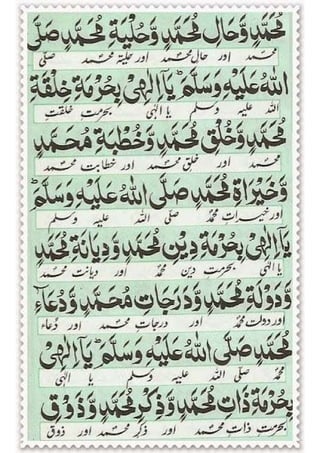 مُحَمَّدٍ وَّحَالِ مُحَمَّدٍ وَّحُلْيَةِ مُحَمَّدٍ صَلَّى
محمد اور حال محمد اور حلیۃ محمد صلی
اللّٰهُ عَلَيْهِ وَسَلَّمَ ؕ يَآ اِلٰهِىْ بِحُرْمَةِ خِلْقَةِ
اللہ علیہ وسلم یا الٰہی بحرمت خلقت
مُحَمَّدٍ وَّخُلُقِ مُحَمَّدٍ وَّخُطْبَةِ مُحَمَّدٍ
محمد اور خلق محمد اور خطابت محمد
وَّخَيْرَاةِ مُحَمَّدٍ صَلَّى اللّٰهُ عَلَيْهِ وَسَلَّمَ ؕ
اور خیرات محمد صلی اللہ علیہ وسلم
يَآ اِلٰهِىْ بِحُرْمَةِ دِيْنِ مُحَمَّدٍ وَّدِيَانَةِ مُحَمَّدٍ
یا الٰہی بحرمت دین محمد اور دیانت محمد
وَّدَوْلَةِ مُحَمَّدٍ وَّدَرَجَاتِ مُحَمَّدٍ وَّدُعَآءِ
اور دولت محمد اور درجات محمد اور دعاء
مُحَمَّدٍ صَلَّى اللّٰهُ عَلَيْهِ وَسَلَّمَ ؕ يَآ اِلٰهِىْ
محمد صلی اللہ علیہ وسلم یا الٰہی
بِحُرْمَةِ ذَاتِ مُحَمَّدٍ وَّذِكْرِ مُحَمَّدٍ وَّذَوْقِ
بحرمت ذات محمد اور ذکر محمد اور ذوق